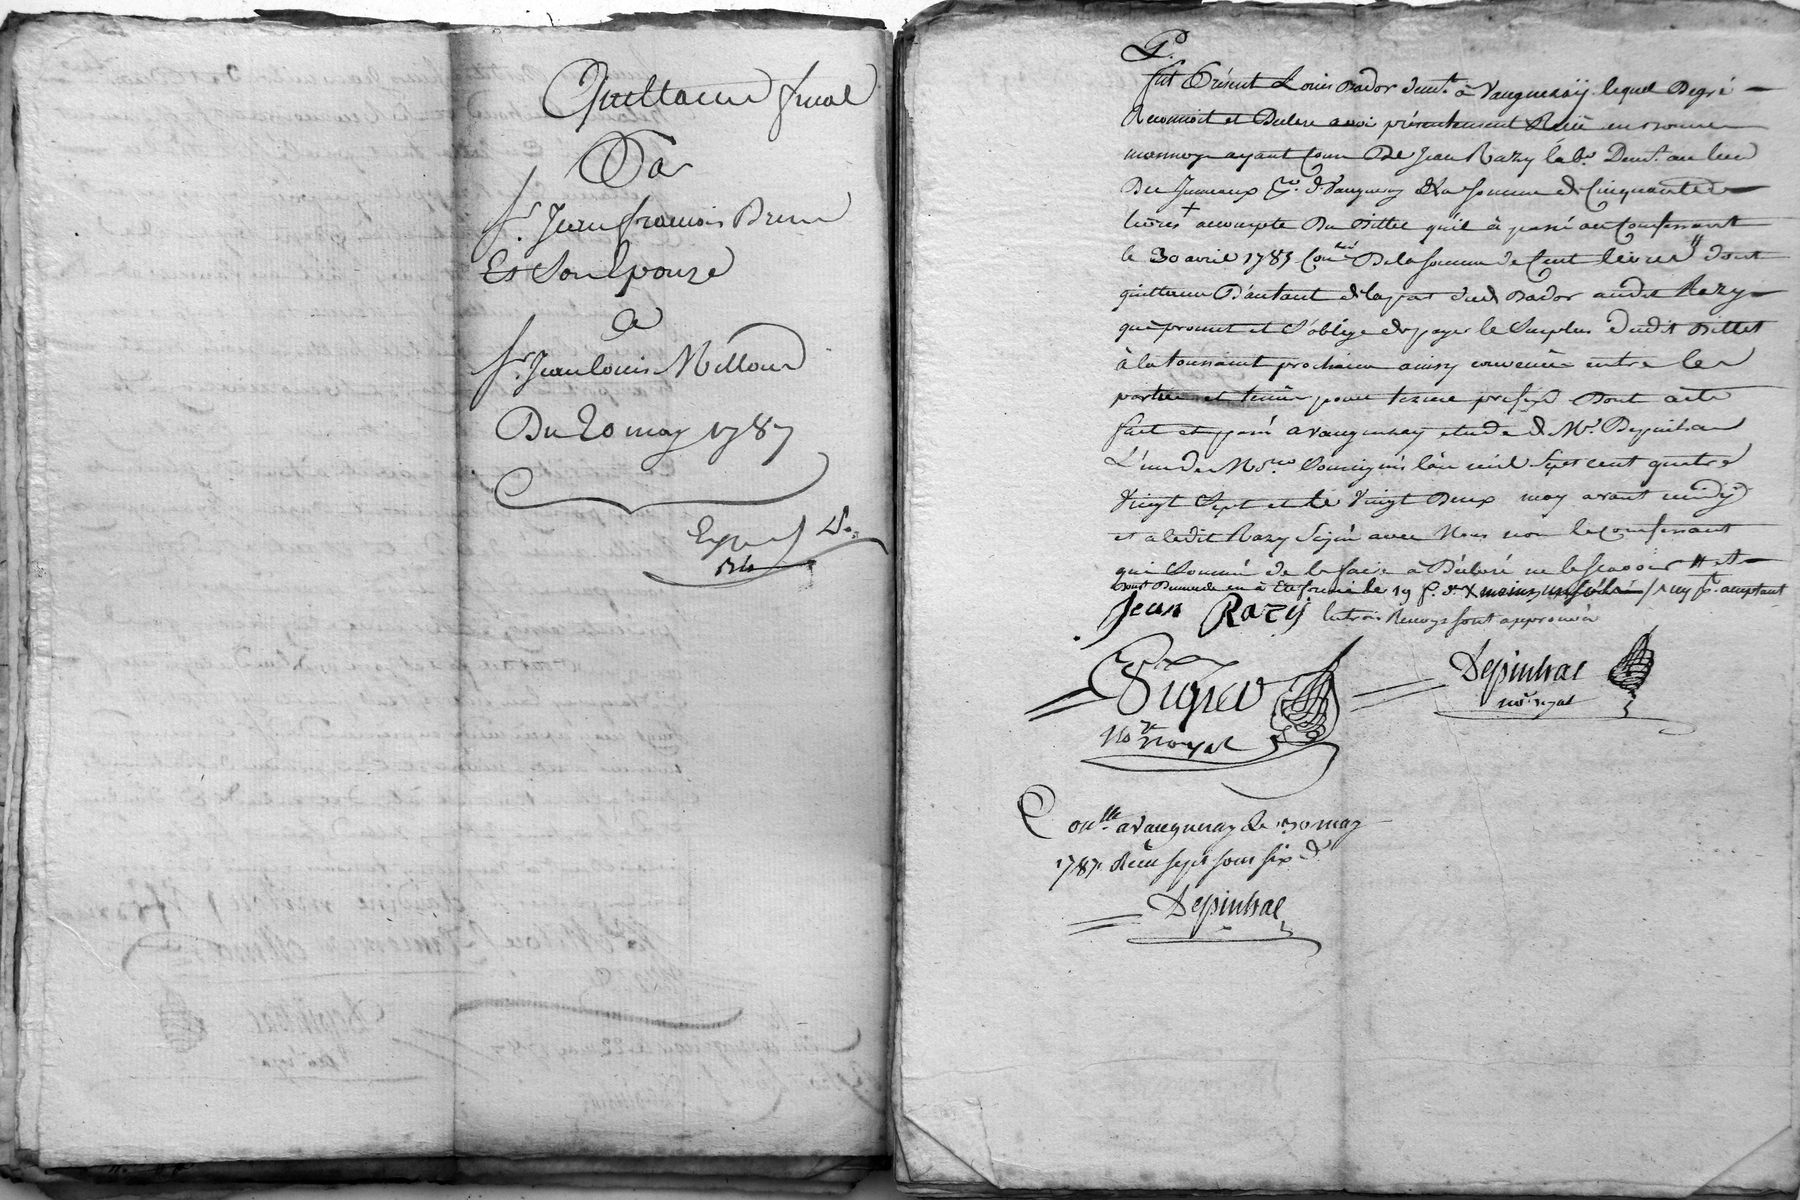 Quittance final
Par
Sr. Jean francois Brun
Et Son Epouze
a
Sr. Jean louis Millou
Du 20 may 1787
P.
fut Présent Louis Bador demt. à Vaugneray lequel Degré
Reconnoit et Declare avoir présentement Reçû en bonne
monnoye ayant Cour De Jean Razy lab. Demt. au lieu
Des Jumeaux de Vaugneray de la somme de Cinquante
livres + acompte Du Billet qu'il à passé au Confessant
le 30 avril 1785 De la somme de Cent livres dont
quittance D'autant de la part dud Bador audit Razy
qui promet et S'oblige de payer le Surplus dudit Billet
à la toussaint prochaine ainsy convenu entre les
parties et tenir pour terme prefixe Dont acte
fait et passé a vaugneray etude de Me. Depinhac
L'un des Nores Soussignés l'an mil Sept cent quatre
Vingt Sept et le Vingt Deux may avant midy
et a ledit Razy Signé avec Nous non le confessant
qui Sommé de le faire à Declaré ne le Scavoir
Jean Razy les trois Renvoys sont approuvés
Depinhac
nore. royal
Nore Royal
Conlle a vaugneray le 30 may
1787 Reçu sept sous six d.
Depinhac